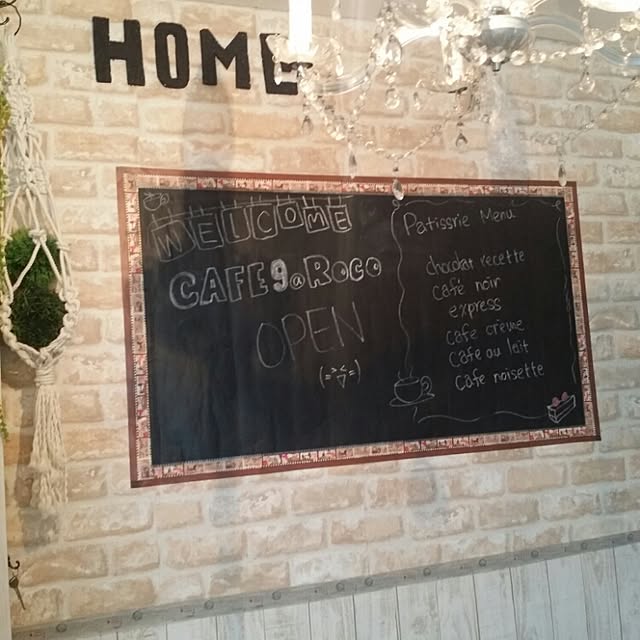 HOME
WELCOME
CAFE9@ROCO
OPEN
(=><=)
Patissrie Menu
chocolat recette
café noir
express
cafe crème
cafe au lait
cafe noisette